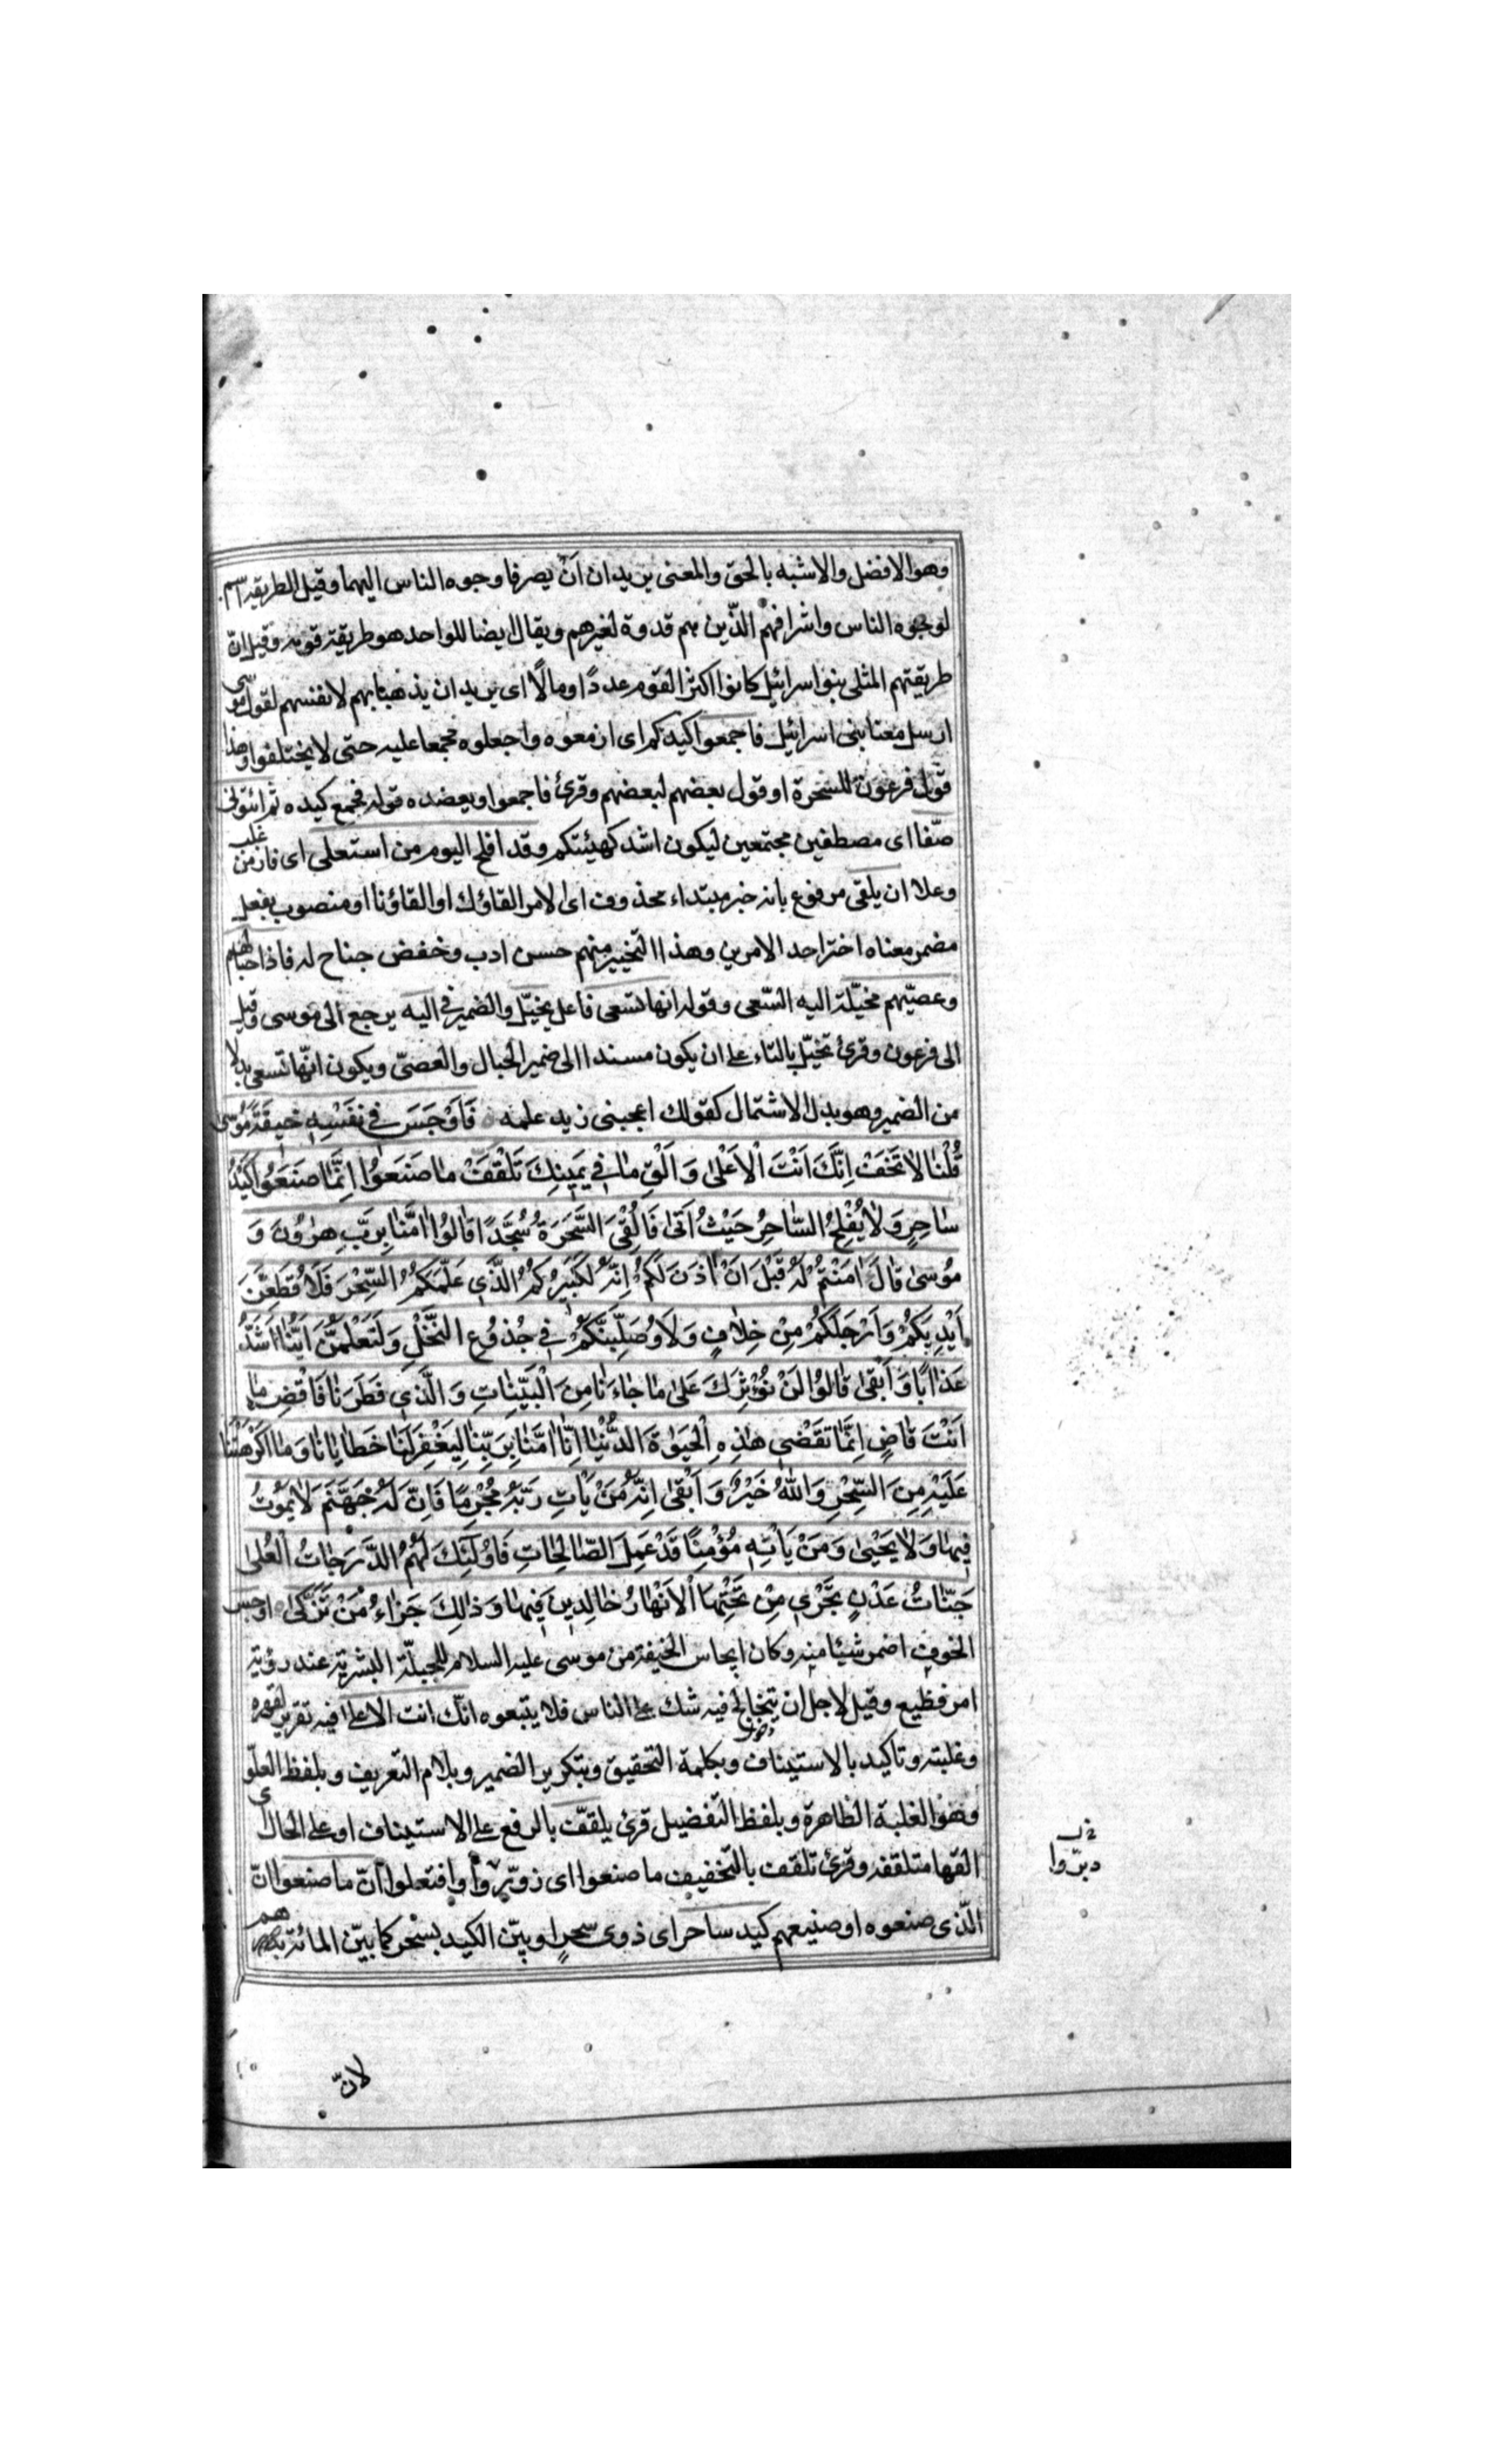 وهو الافضل والاشبه بالحق والمعنى يريدان ان يصرفا وجوه الناس اليهما وقيل الطريقة اسم
لوجوه الناس واشرافهم الّذين هم قدوة لغيرهم ويقال ايضا للواحد هو طريقة قومه وقيل انّ
طريقتهم المثلى بنو اسرائيل كانوا اكثر القوم عددًا ومالًا اى يريدان يذهبا بهم لانفسهم لقول موسى
ارسل معنا بنى اسرائيل فاجمعوا كيدكم اى ازمعوه واجعلوه مجمعا عليه حتى لا يختلفوا وهذا
قول فرعون للسّحرة او قول بعضهم لبعضهم وقرئ فاجمعوا ويعضده قوله فجمع كيده ثم ائتوا
صّفا اى مصطفين مجتمعين ليكون اشد كهيئتكم وقد افلح اليوم من استعلى اى فاز من غلب
وعلا ان يلقى مرفوع بانه خبر مبتداء محذوف اى الامر القاؤك او القاؤنا او منصوب بفعل
مضمر معناه اختر احد الامرين وهذا التخيير منهم حسن ادب وخفض جناح له فاذا حبالهم
وعصيّهم مخيّلة اليه السّعى وقوله انها تسعى فاعل يخيّل والضمير فى اليه يرجع الى موسى وقيل
الى فرعون وقرئ تخيّل بالتاء على ان يكون مسندا الى ضمير الحبال والعصىّ ويكون انّها تسعى بدلا
من الضمير وهو بدل الاشتمال كقولك اعجبنى زيد علمه فَاَوْجَسَ فى نَفْسِهِ خيفَةً مُوسى
قُلْنا لا تَخَفْ اِنَّكَ اَنْتَ الْاَعْلى وَ اَلْقِ ما فى يَمينِكَ تَلْقَفْ ما صَنَعُوا اِنَّما صَنَعُوا كَيْدُ
ساحِرٍ وَلا يُفْلِحُ السّاحِرُ حَيْثُ اَتى فَاُلْقِىَ السَّحَرَةُ سُجَّدًا قالُوا امَنّا بِرَبِّ هرُونَ وَ
مُوسى قالَ امَنْتُمْ لَهُ قَبْلَ اَنْ اذَنَ لَكُمْ اِنَّهُ لَكَبيرُكُمُ الَّذى عَلَّمَكُمُ السِّحْرَ فَلَاُقَطِّعَنَّ
اَيْدِيَكُمْ وَاَرْجُلَكُمْ مِنْ خِلافٍ وَلَاُوصَلِّبَنَّكُمْ فى جُذُوعِ النَّخْلِ وَلَتَعْلَمُنَّ اَيُّنا اَشَدُّ
عَذابًا وَاَبْقى قالُوا لَنْ نُؤْثِرَكَ عَلى ما جاءَنا مِنَ الْبَيِّناتِ وَالَّذى فَطَرَنا فَاقْضِ ما
اَنْتَ قاضٍ اِنَّما تَقْضى هذِهِ الْحَيوةَ الدُّنْيا اِنّا امَنّا بِرَبِّنا لِيَغْفِرَ لَنا خَطايانا وَما اَكْرَهْتَنا
عَلَيْهِ مِنَ السِّحْرِ وَاللهُ خَيْرٌ وَاَبْقى اِنَّهُ مَنْ يَاْتِ رَبَّهُ مُجْرِمًا فَاِنَّ لَهُ جَهَنَّمَ لا يَمُوتُ
فيها وَلا يَحْيى وَمَنْ يَاْتِه مُؤْمِنًا قَدْ عَمِلَ الصّالِحاتِ فَاُولئِكَ لَهُمُ الدَّرَجاتُ الْعُلى
جَنّاتُ عَدْنٍ تَجْرى مِنْ تَحْتِهَا الْاَنْهارُ خالِدينَ فيها وَذلِكَ جَزاءُ مَنْ تَزَكّى اوجس
الخوف اضمر شيئا منه وكان ايجاس الخيفة من موسى عليه السلام للجبلّة البشرية عند رؤية
امر فظيع وقيل لاجل ان يتخالج فيه شك على الناس فلا يتبعوه انّك انت الاعلى فيه تقرير لقهره
وغلبته وتاكيد بالاستيناف وبكلمة التحقيق وبتكرير الضمير وبلام التعريف وبلفظ العلوّ
وهو الغلبة الظاهرة وبلفظ التفضيل قرئ يلقّف بالرفع على الاستيناف او على الحال اى
القها متلقفة وقرئ تلقف بالتخفيف ما صنعوا اى زوّروا وافتعلوا انّ ما صنعوا انّ
الّذى صنعوه او صنيعهم كيد ساحر اى ذوى سحرٍ او بيّن الكيد بسحر كما بيّن المائة بدرهم
دبرّوا
لانّ